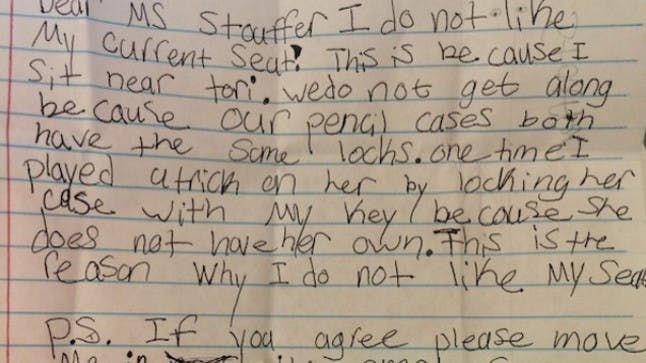 Dear MS Stouffer I do not like
My current Seat! This is be cause I
Sit near tori. we do not get along
be cause our pencil cases both
have the same locks. one time I
played a trick on her by locking her
case with My key be cause She
does not have her own. This is the
reason why I do not like My Seat
P.S. If you agree please move
Me in